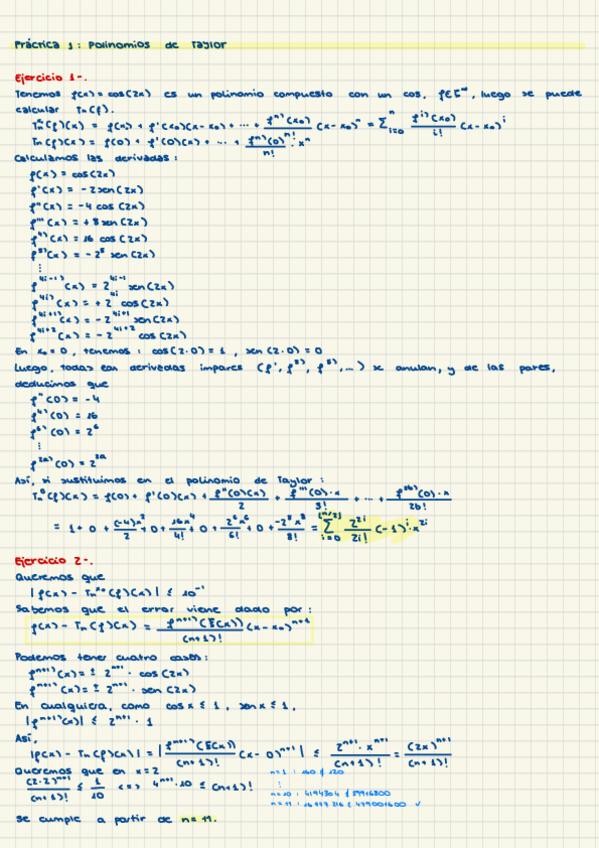 Práctica 1: Polinomios de Taylor
Ejercicio 1-.
Tenemos f(x) = cos(2x) es un polinomio compuesto con un cos, f∈C^∞, luego se puede
calcular Tn(f).
Tn(f)(x) = f(x₀) + f'(x₀)(x-x₀) + ... + f^n)(x₀)/n! (x-x₀)^n = Σ_{i=0}^n f^i)(x₀)/i! (x-x₀)^i
Tn(f)(x) = f(0) + f'(0)(x) + ... + f^n)(0)/n! · x^n
Calculamos las derivadas:
f(x) = cos(2x)
f'(x) = -2sen(2x)
f''(x) = -4 cos(2x)
f'''(x) = +8 sen(2x)
f^4)(x) = 16 cos(2x)
f^5)(x) = -2^5 sen(2x)
⋮
f^4i-1)(x) = 2^4i-1 sen(2x)
f^4i)(x) = +2^4i cos(2x)
f^4i+1)(x) = -2^4i+1 sen(2x)
f^4i+2(x) = -2^4i+2 cos(2x)
En x₀=0, tenemos: cos(2·0)=1, sen(2·0)=0
Luego, todas las derivadas impares (f', f^3), f^5),...) se anulan, y de las pares,
deducimos que
f''(0) = -4
f^4)(0) = 16
f^6)(0) = 2^6
⋮
f^2a)(0) = 2^2a
Así, si sustituimos en el polinomio de Taylor:
Tn^0(f)(x) = f(0) + f'(0)(x) + f''(0)(x)/2 + f'''(0)·x/3! + ... + f^2b)(0)·x/2b!
= 1 + 0 + (-4)x²/2 + 0 + 16x⁴/4! + 0 + 2^6x^6/6! + 0 + -2^8x^8/8! = Σ_{i=0}^{[n/2]} 2^2i/2i! (-1)^i · x^2i
Ejercicio 2-.
Queremos que
|f(x) - Tn(f)(x)| ≤ 10^-1
Sabemos que el error viene dado por:
f(x) - Tn(f)(x) = f^n+1)(ξ(x))/(n+1)! (x-x₀)^n+1
Podemos tener cuatro casos:
f^n+1)(x) = ± 2^n+1 · cos(2x)
f^n+1)(x) = ± 2^n+1 · sen(2x)
En cualquiera, como cosx ≤ 1, senx ≤ 1,
|f^n+1)(x)| ≤ 2^n+1 · 1
Así,
|f(x) - Tn(f)(x)| = |f^n+1)(ξ(x))/(n+1)! (x-0)^n+1| ≤ 2^n+1 · x^n+1/(n+1)! = (2x)^n+1/(n+1)!
Queremos que en x=2
(2·2)^n+1/(n+1)! ≤ 1/10 <=> 4^n+1 · 10 ≤ (n+1)!
⋮
Se cumple a partir de n=11.